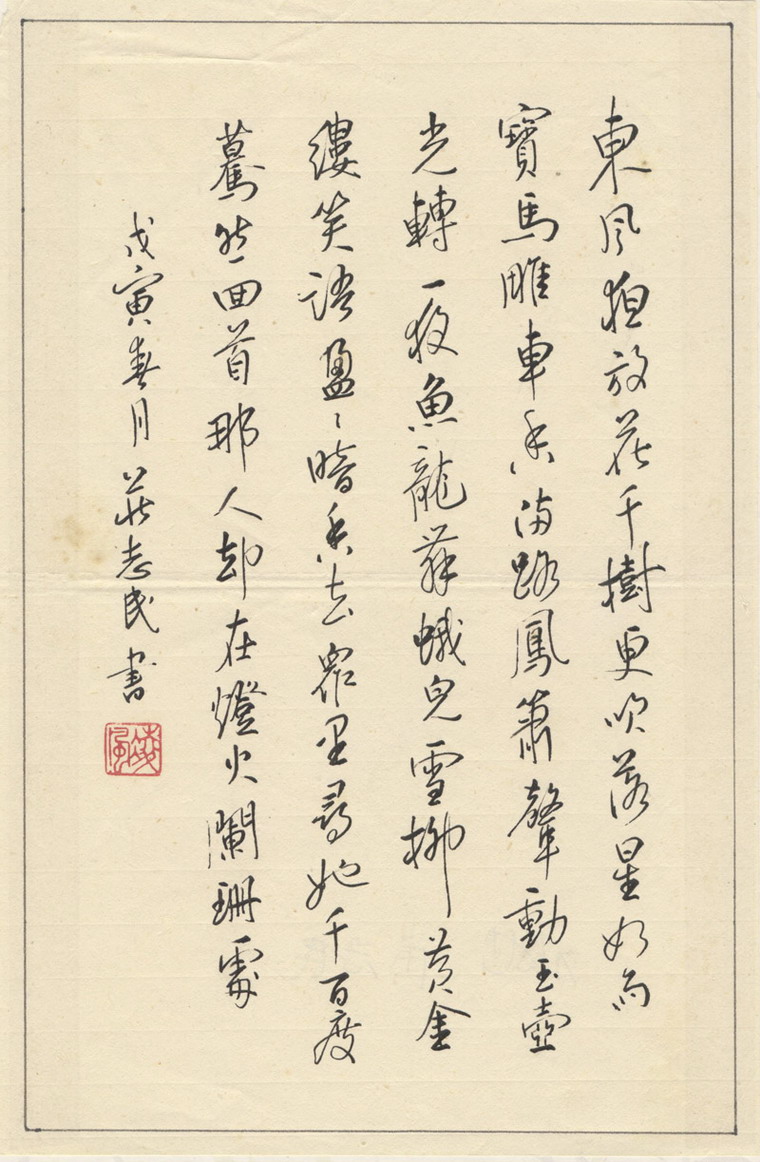 東風放花千樹更吹落星如雨
寶馬雕車香滿路鳳簫聲動玉壺
光轉一夜魚龍舞蛾兒雪柳黃金
縷笑語盈〻暗香去眾里尋她千百度
驀然回首那人却在燈火闌珊處
戊寅春月莊志民書